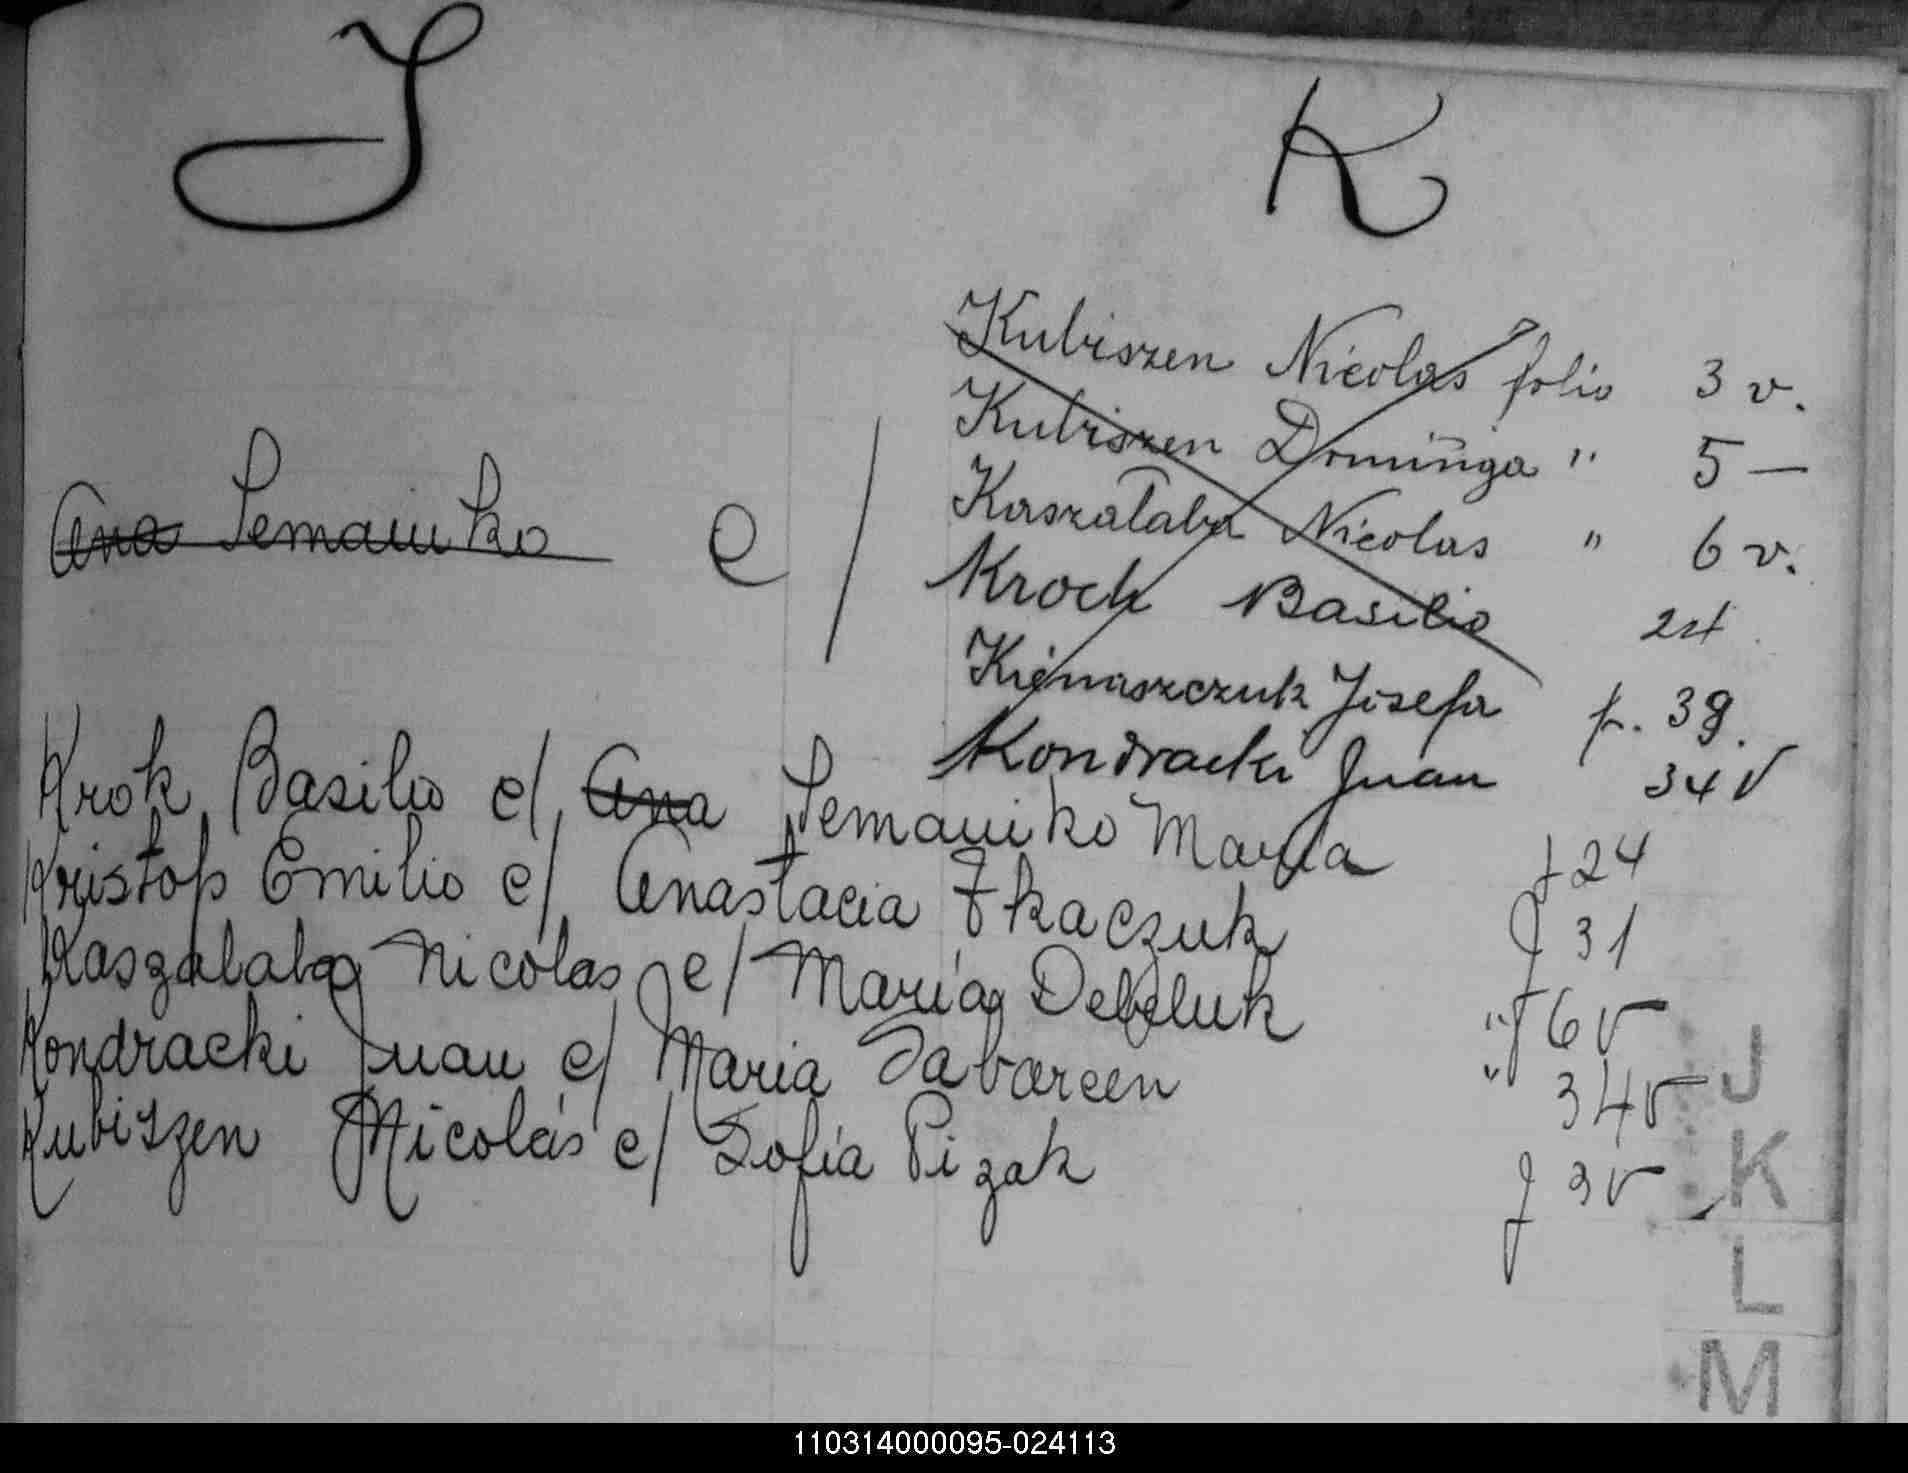 J
K
Kubiszen Nicolas folio 3 v.
Kubiszen Dominga " 5 —
Kaszałaba Nicolas " 6 v.
Kroch Basilio 24
Kiernaszczuk Josefa f. 39.
Kondracki Juan 34 v
Ana Semaniko c/
Krok Basilio c/ Ana Semaniko Maria f 24
Kristop Emilio c/ Anastacia Tkaczuk f 31
Kaszalaba Nicolas c/ María Debeluk " f 6 v
Kondracki Juan c/ Maria " 34 v
Kubiszen Nicolás c/ Sofía Pizak f 3 v
J
K
L
M
110314000095-024113